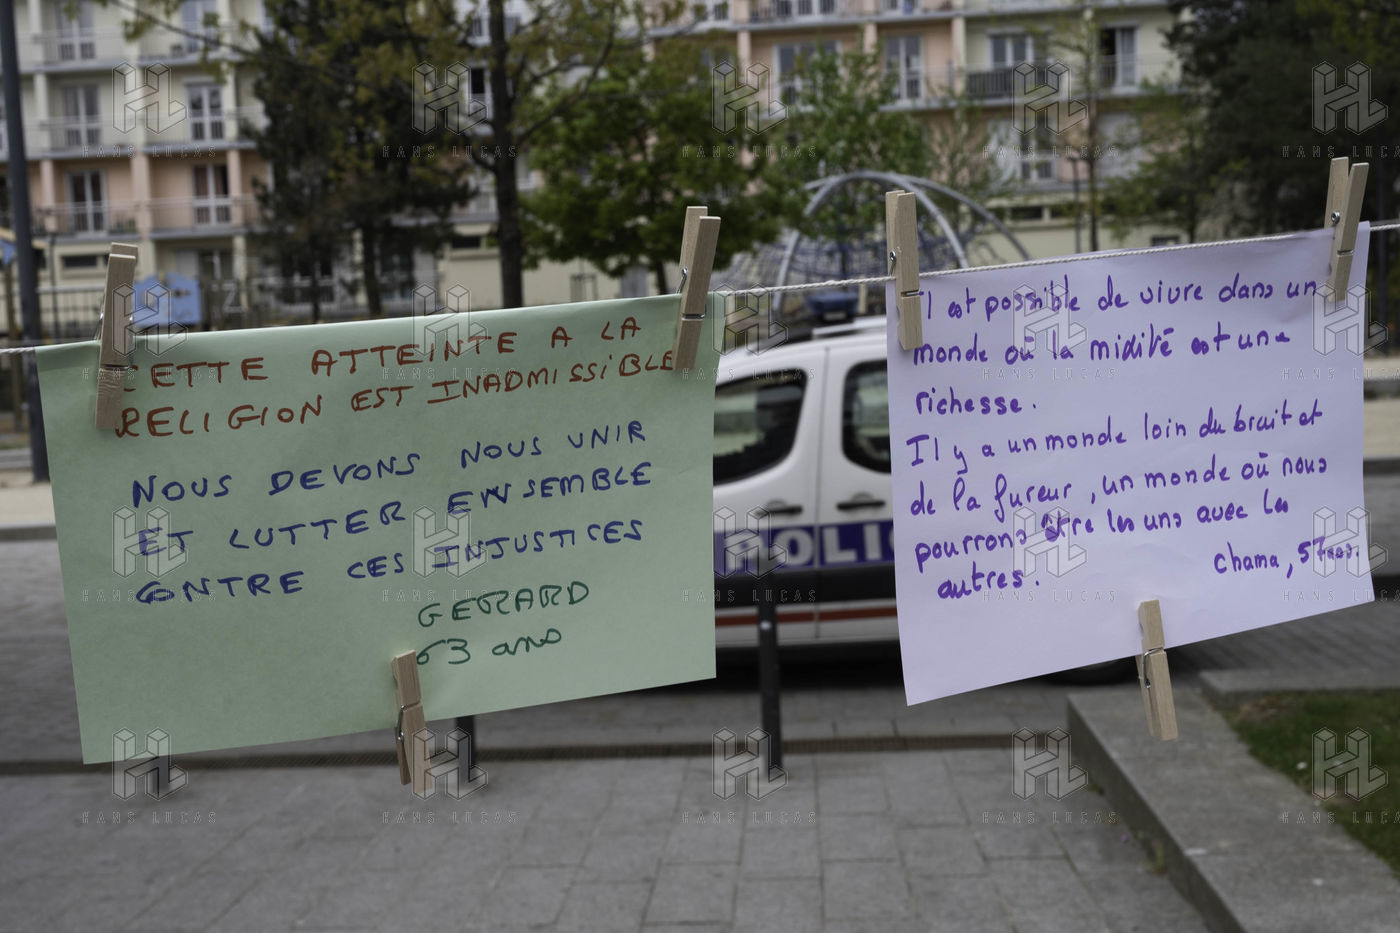 CETTE ATTEINTE A LA
RELIGION EST INADMISSIBLE
NOUS DEVONS NOUS UNIR
ET LUTTER ENSEMBLE
CONTRE CES INJUSTICES
GERARD
63 ans
Il est possible de vivre dans un
monde où la mixité est une
richesse.
Il y a un monde loin du bruit et
de la fureur, un monde où nous
pourrons être les uns avec les
autres.
Chama, 57 ans.
POLIC
HANS LUCAS